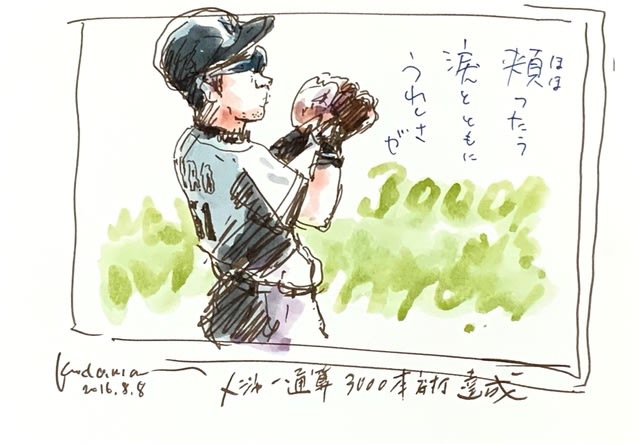 頬ったう
ほほ
涙とともに
うれしさぞ
3000
RO
51
Kodama
2016.8.8
メジャー通算 3000本安打 達成